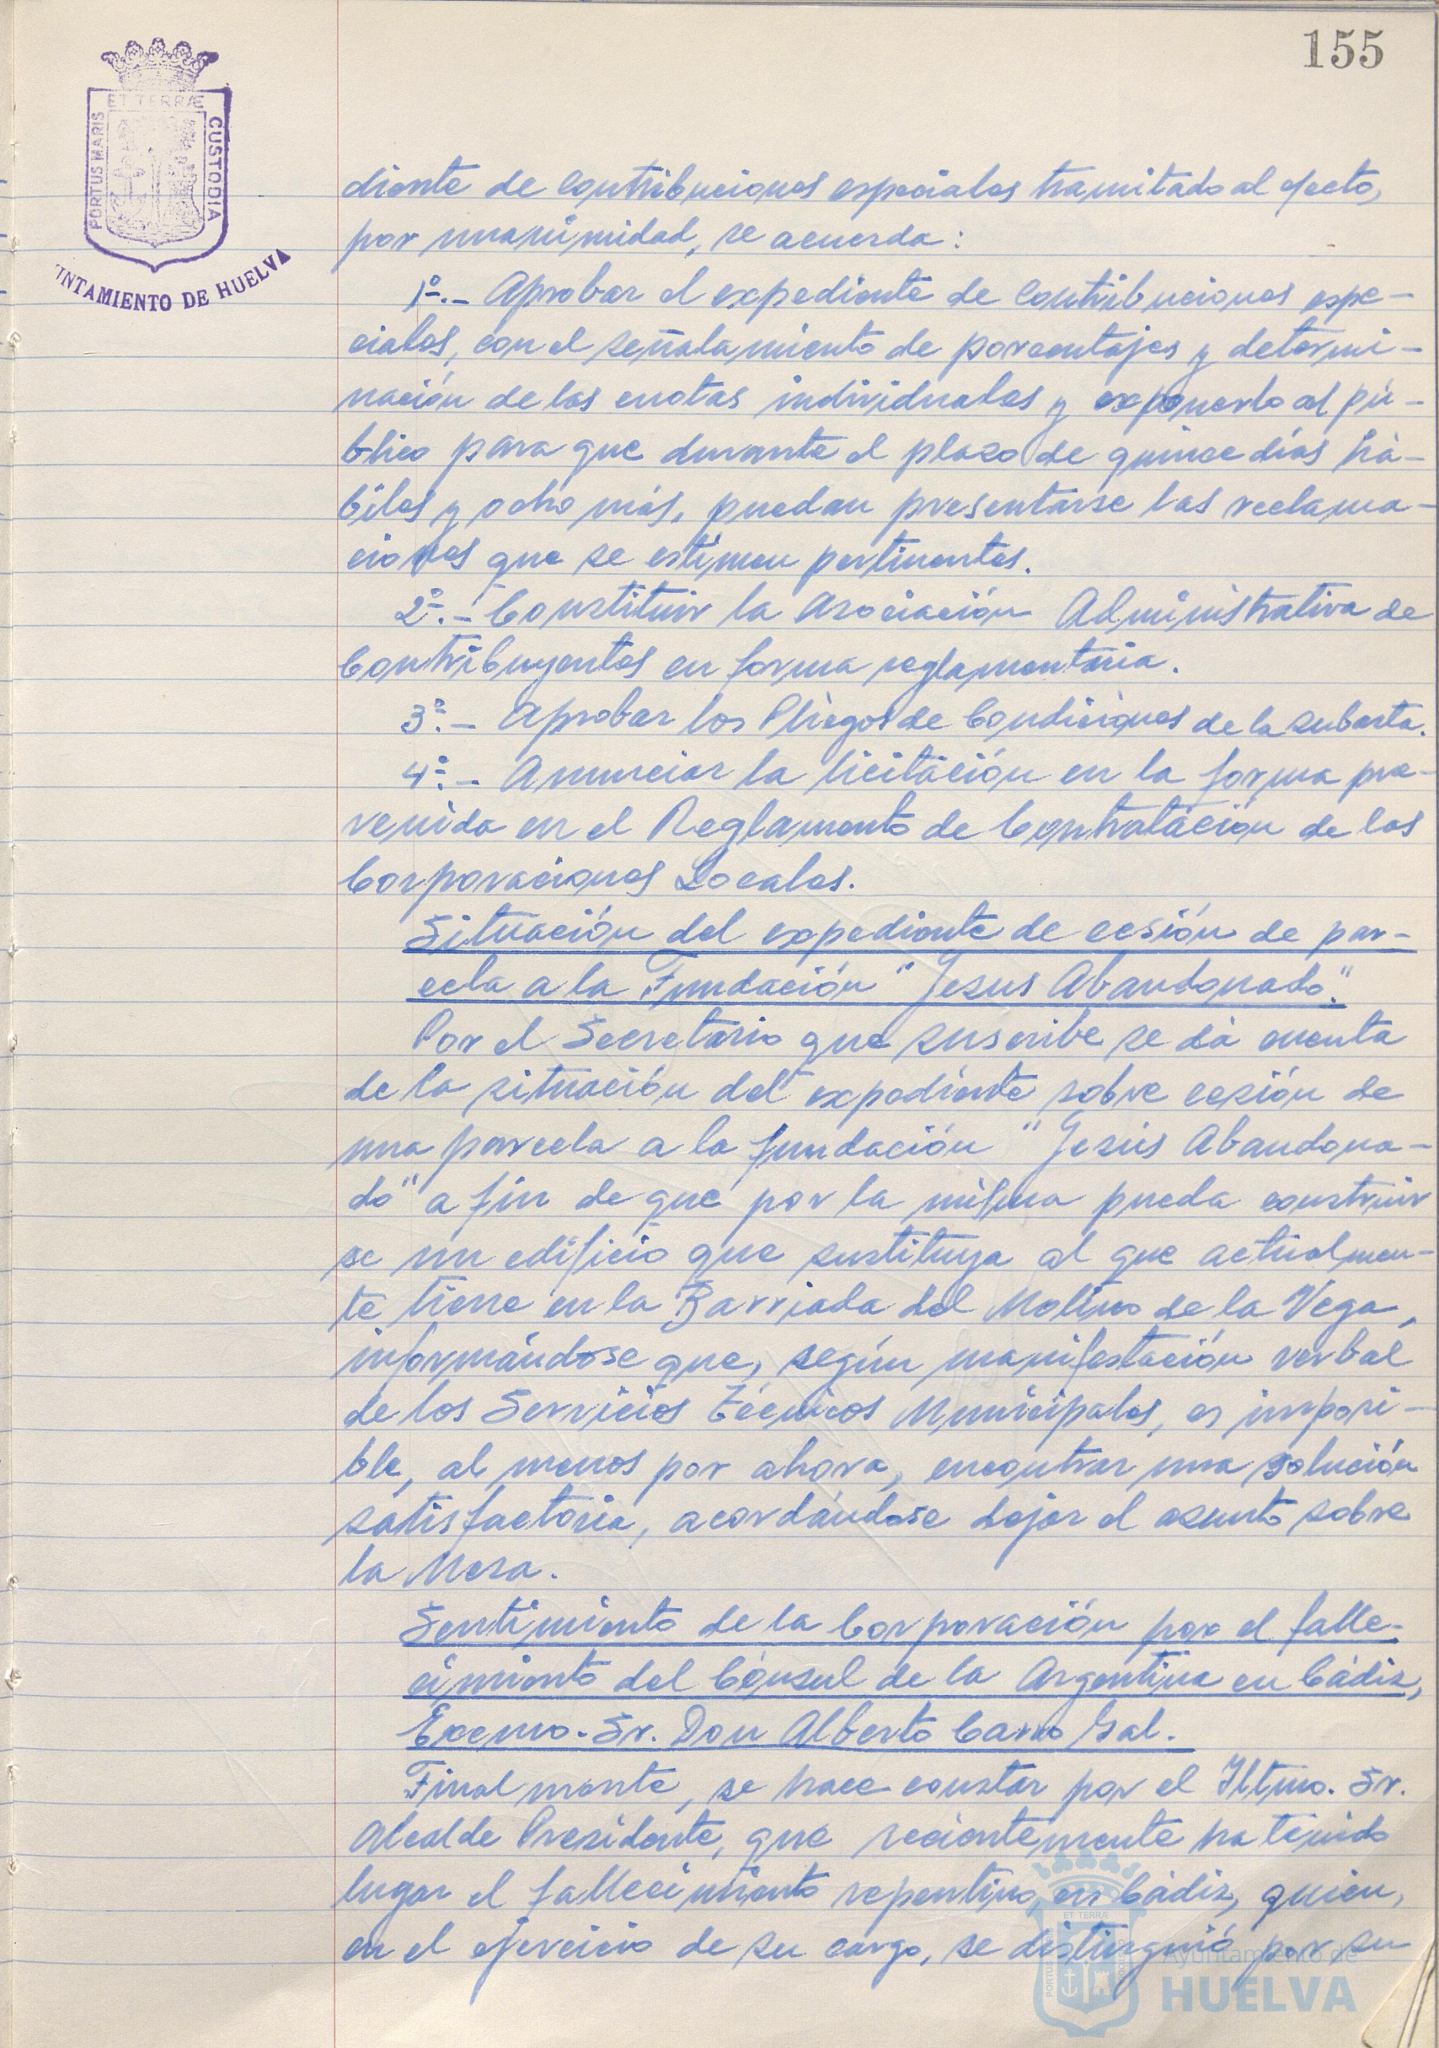 155
ET TERRÆ
PORTUS MARIS
CUSTODIA
UNTAMIENTO DE HUELVA
diente de contribuciones especiales tramitado al efecto,
por unanimidad, se acuerda:
1º.- Aprobar el expediente de contribuciones espe-
ciales, con el señalamiento de porcentajes y determi-
nación de las cuotas individuales y exponerlo al pú-
blico para que durante el plazo de quince días há-
biles y ocho más, puedan presentarse las reclama-
ciones que se estimen pertinentes.
2º.- Constituir la Asociación Administrativa de
Contribuyentes en forma reglamentaria.
3º.- Aprobar los Pliegos de Condiciones de la subasta.
4º.- Anunciar la licitación en la forma pre-
venida en el Reglamento de Contratación de las
Corporaciones Locales.
Situación del expediente de cesión de par-
cela a la Fundación "Jesus Abandonado".
Por el Secretario que suscribe se dá cuenta
de la situación del expediente sobre cesión de
una parcela a la fundación "Jesús Abandona-
do" a fin de que por la misma pueda construir
se un edificio que sustituya al que actualmen-
te tiene en la Barriada del Molino de la Vega,
informándose que, según manifestación verbal
de los Servicios Técnicos Municipales, es imposi-
ble, al menos por ahora, encontrar una solución
satisfactoria, acordándose dejar el asunto sobre
la Mesa.
Sentimiento de la Corporación por el falle-
cimiento del Cónsul de la Argentina en Cádiz,
Excmo. Sr. Don Alberto Gal.
Finalmente, se hace constar por el Iltmo. Sr.
Alcalde Presidente, que recientemente ha tenido
lugar el fallecimiento repentino, en Cádiz, quien,
en el ejercicio de su cargo, se distinguió por su
ET TERRÆ
Ayuntamiento de
HUELVA